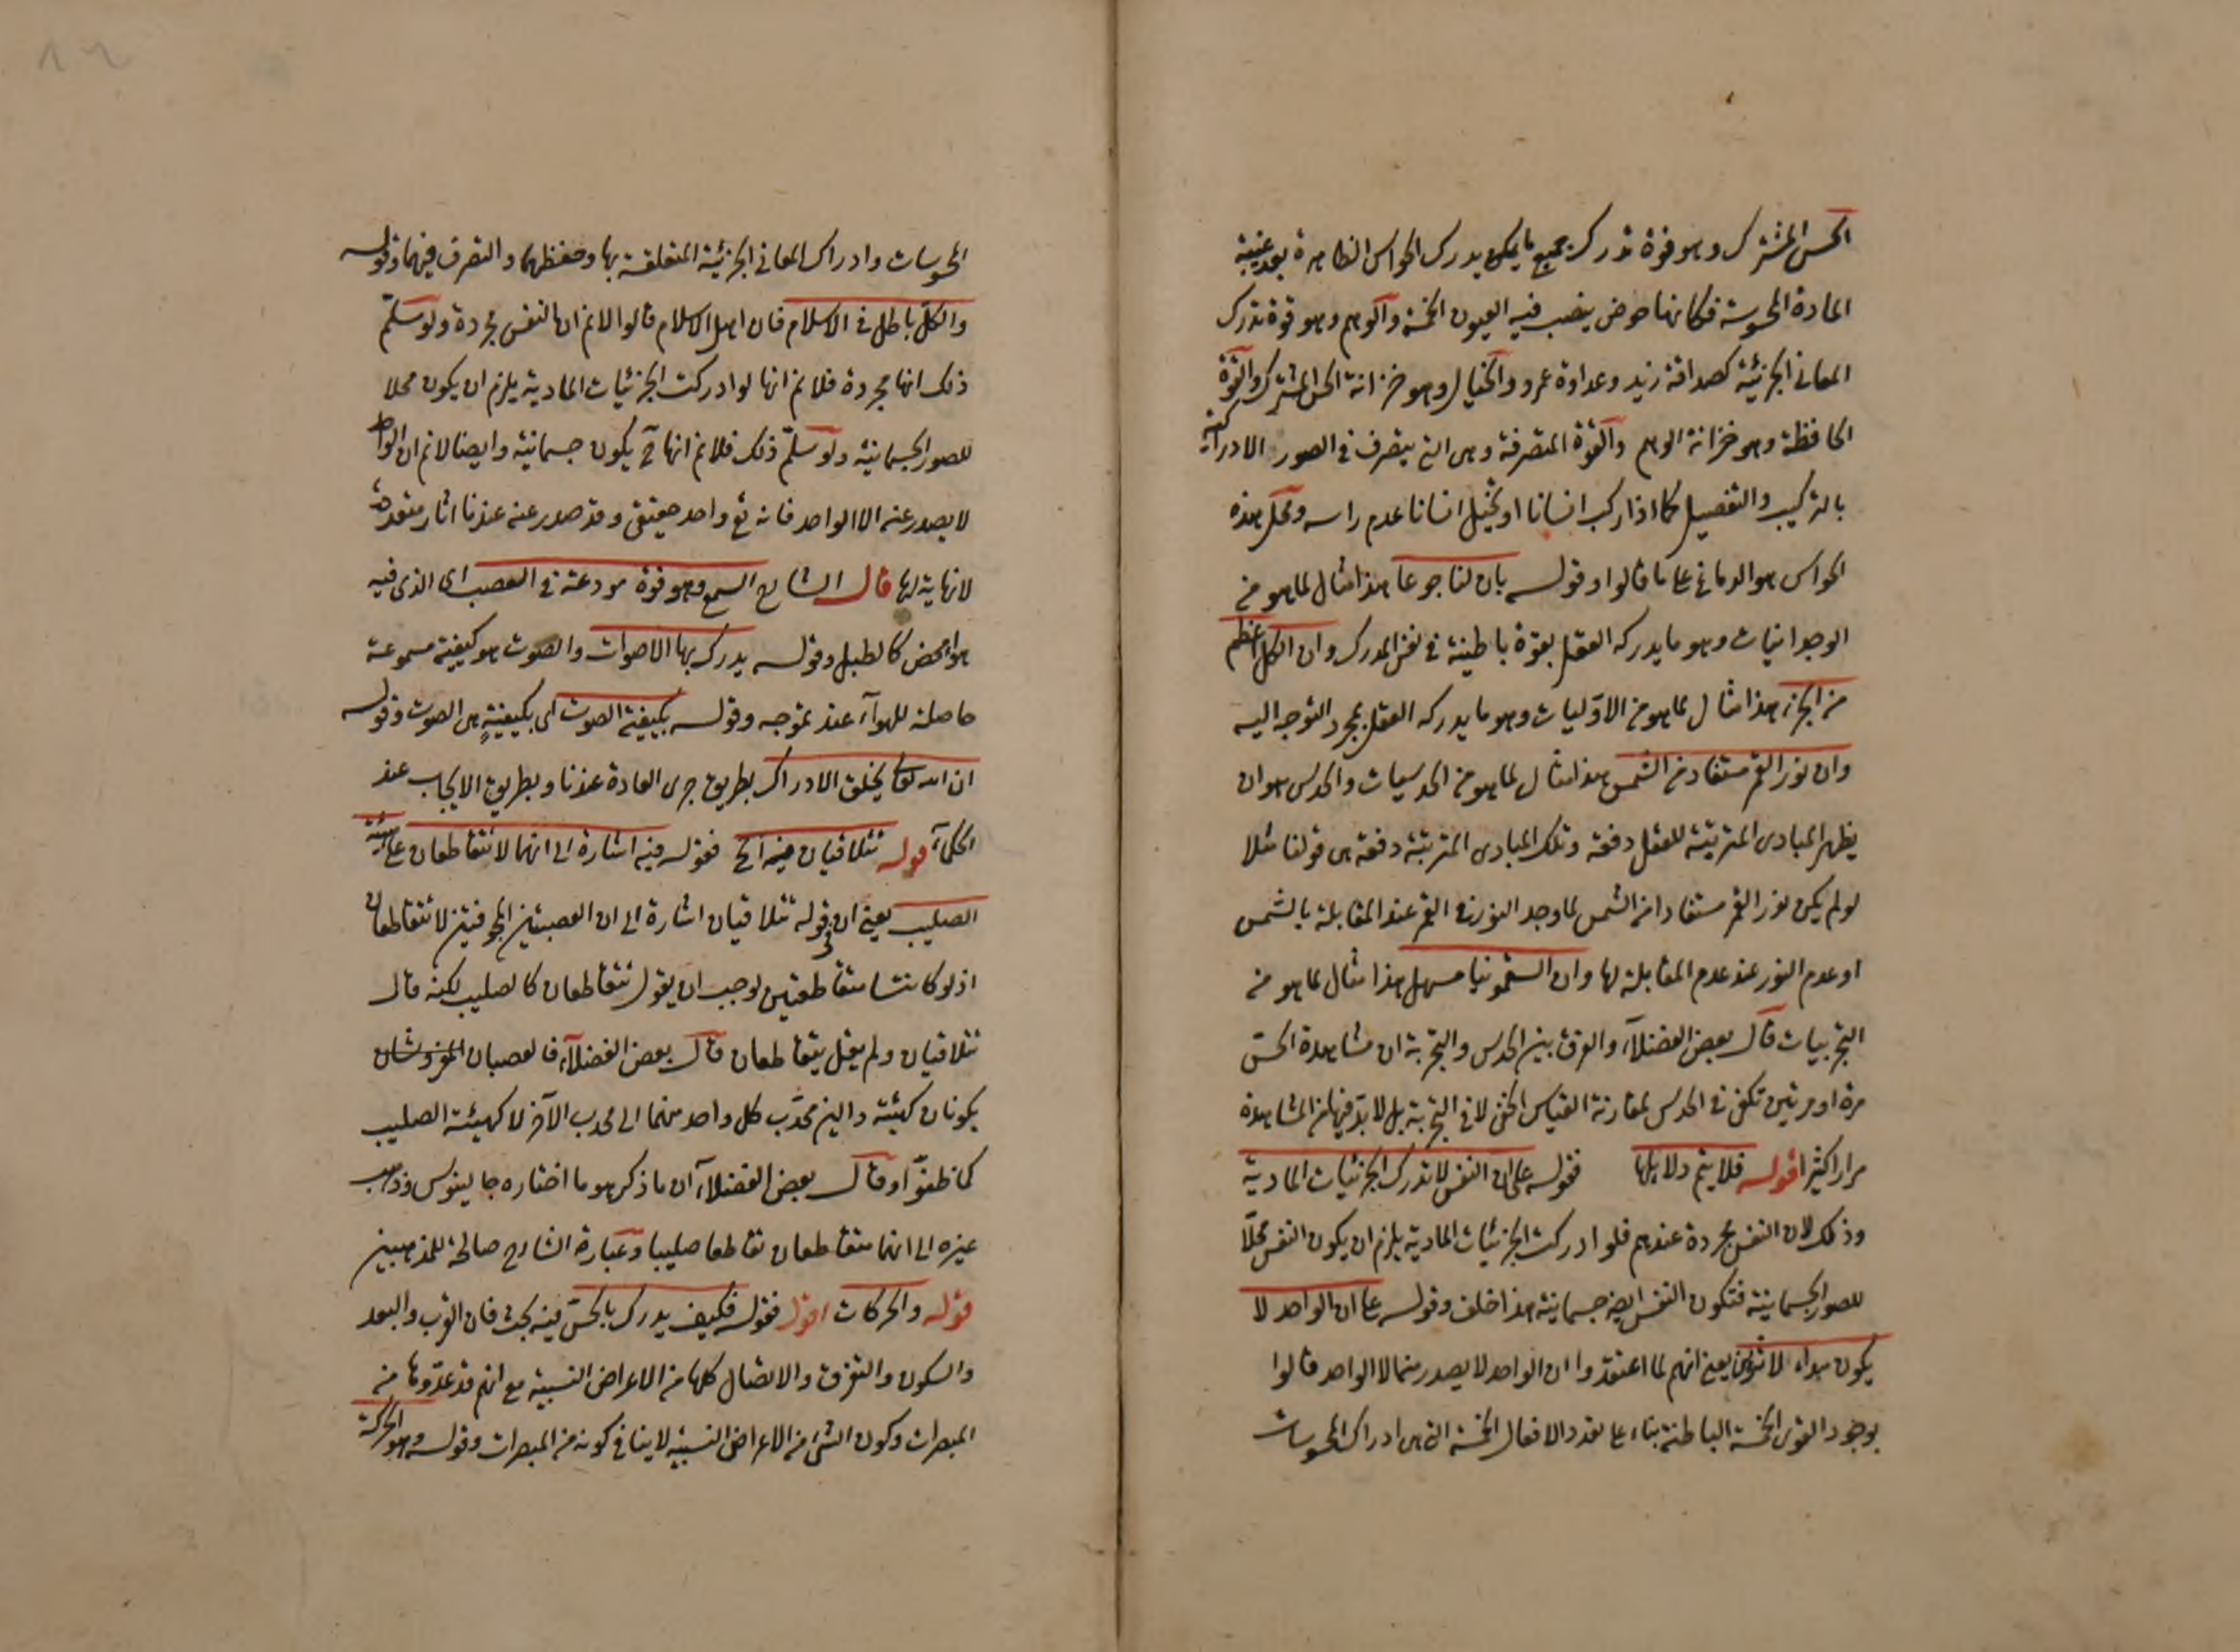 الحس المشترك وهو قوة تدرك جميع ما يمكن يدرك الحواس الظاهرة بعد غيبة
المادة المحسوسة فكانها حوض ينصب فيه العيون الخمسة والوهم وهو قوة تدرك
المعانى الجزئية كصداقة زيد وعداوة عمرو والخيال وهو خزانة الحس المشترك والقوة
الحافظة وهو خزانة الوهم والقوة المتصرفة وهى التى يتصرف فى الصور الادراكية
بالتركيب والتفصيل كما اذا ركب انسانا او تخيل انسانا عدم راسه ومحل هذه
الحواس هو الدماغ على ما قالوا وقوله بان لنا جوعا هذا مثال لما هو من
الوجدانيات وهو ما يدركه العقل بقوة باطنية فى نفس المدرك وان الكل اعظم
من الجزء هذا مثال لما هو من الاوّليات وهو ما يدركه العقل بمجرد التوجه اليه
وان نور القمر مستفاد من الشمس هذا مثال لما هو من الحدسيات والحدس هو ان
يظهر المبادى المترتبة للعقل دفعة وتلك المبادى المترتبة دفعة هى قولنا مثلا
لو لم يكن نور القمر مستفادا من الشمس لما وجد النور فى القمر عند المقابلة بالشمس
او عدم النور عند عدم المقابلة لها وان السقمونيا مسهل هذا مثال لما هو من
التجربيات قال بعض الفضلاء والفرق بين الحدس والتجربة ان مشاهدة الحسّ
مرة او مرتين تكفى فى الحدس لمقارنة القياس الخفى لا فى التجربة بل لا بدّ فيها من المشاهدة
مرارا كثيرا قوله فلا يتم دلايلها فقوله على ان النفس لا تدرك الجزئيات المادية
وذلك لان النفس مجردة عندهم فلو ادركت الجزئيات المادية يلزم ان يكون النفس محلّا
للصور الجسمانية فتكون النفس ايضا جسمانية هذا خلف وقوله على ان الواحد لا
يكون مبداء لاثنين يعنى انهم لما اعتقدوا ان الواحد لا يصدر منه الا الواحد قالوا
بوجود القوى الخمسة الباطنة بناء على تعدد الافعال الخمسة التى هى ادراك المحسوسات
المحسوسات وادراك المعانى الجزئية المتعلقة بها وحفظهما والتصرف فيهما وقوله
والكل باطل فى الاسلام فان اهل الاسلام قالوا لانم ان النفس مجردة ولو سلّم
ذلك انها مجردة فلا نم انها لو ادركت الجزئيات المادية يلزم ان يكون محلا
للصور الجسمانية ولو سلّم ذلك فلانم انها ح يكون جسمانية وايضا لانم ان الواحد
لا يصدر عنه الا الواحد فانه تع واحد حقيقى وقد صدر عنه عندنا اثار متعددة
لا نهاية لها قال الشارح السمع وهو قوة مودعة فى العصب اى الذى فيه
هواء محض كالطبل وقوله يدرك بها الاصوات والصوت هو كيفية مسموعة
حاصلة للهواء عند تموجه وقوله بكيفية الصوت اى بكيفيةٍ هى الصوت وقوله
ان الله تعالى يخلق الادراك بطريق جرى العادة عندنا وبطريق الايجاب عند
الحكماء قوله تتلاقيان فيه الخ فقوله فيه اشارة الى انهما لا تتقاطعان على هيئة
الصليب يعنى ان فى قوله تتلاقيان اشارة الى ان العصبتين المجوفتين لا تتقاطعان
اذ لو كانتا متقاطعتين لوجب ان يقول تتقاطعان كالصليب لكنه قال
تتلاقيان ولم يقل يتقاطعان قال بعض الفضلاء فالعصبان المفروشان
يكونان كهيئة دالين محدّب كل واحد منهما الى محدب الآخر لا كهيئة الصليب
كما ظنّوا وقال بعض الفضلاء ان ما ذكر هو ما اختاره جالينوس وذهب
غيره الى انهما متقاطعان تقاطعا صليبيا وعبارة الشارح صالحة للمذهبين
قوله والحركات اقول فقوله فكيف يدرك بالحسّ فيه بحث فان القرب والبعد
والسكون والتفرق والاتصال كلها من الاعراض النسبية مع انهم قد عدّوها من
المبصرات وكون الشئ من الاعراض النسبية لا ينافى كونه من المبصرات وقوله وهو الحركة